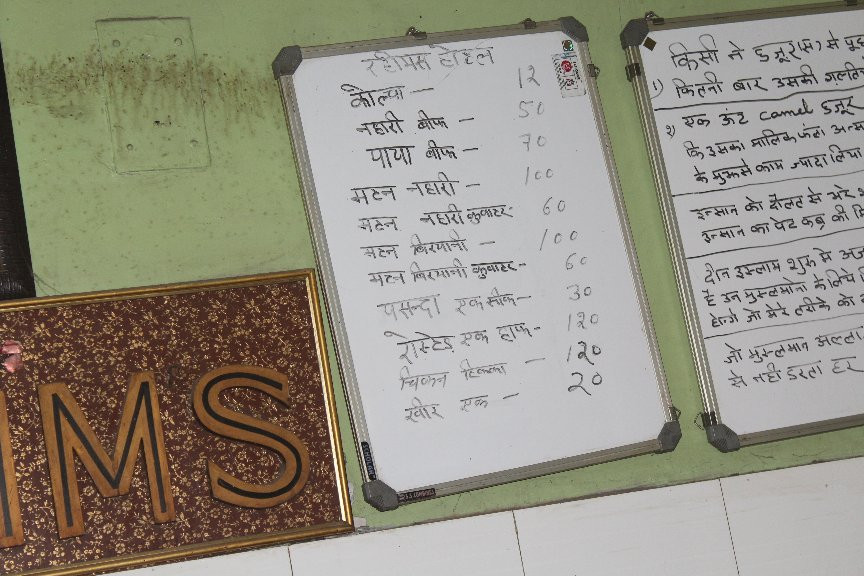 रहीमस होटल
कौल्चा — 12
नहारी बीफ — 50
पाया बीफ — 70
मटन नहारी — 100
मटन नहारी कुवाटर- 60
मटन बिरयानी — 100
मटन बिरयानी कुवाटर- 60
पसन्दा एक सीक- 30
रोस्टेड एक हाफ- 120
चिकन टिक्का — 120
खीर एक — 20
IMS
किसी ने हुजूर(स) से
1) कितनी बार उसकी ग़लति
२) एक ऊँट camel हुजूर
कि इसका मालिक
के मुझसे काम ज्यादा लिया
इन्सान को दौलत से भरे
इन्सान का पेट कब्र की
दीन इस्लाम शुरू में
है उन मुसलमानो के लिये
होन्गे जो मेरे तरीके को
जो मुसलमान अल्ला
से नही डरता हर